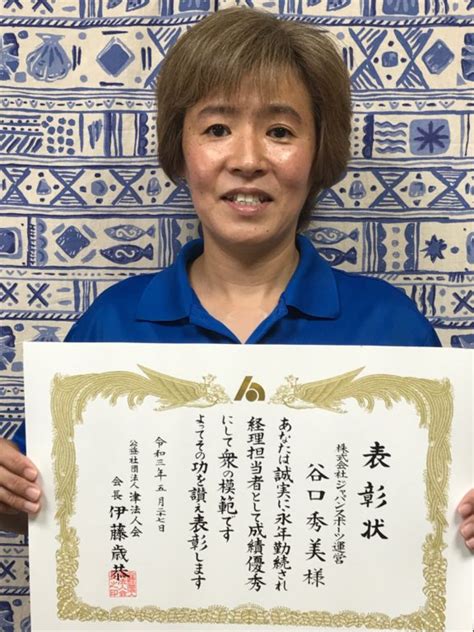 表彰状
株式会社ジャパンスポーツ運営
谷口秀美様
あなたは誠実に永年勤続され
経理担当者として成績優秀
にして衆の模範です
よってその功を讃え表彰します
令和三年五月二十七日
公益社団法人津法人会
会長伊藤歳恭